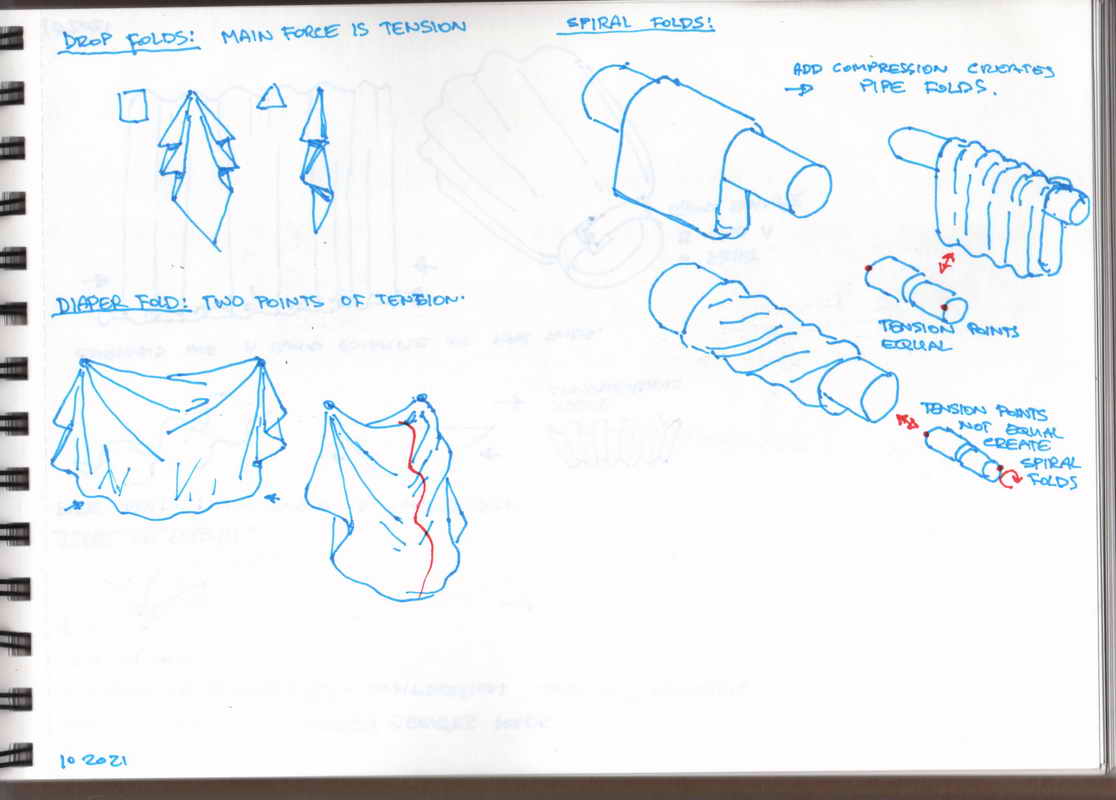 DROP FOLDS: MAIN FORCE IS TENSION
DIAPER FOLD: TWO POINTS OF TENSION.
SPIRAL FOLDS:
ADD COMPRESSION CREATES
→ PIPE FOLDS.
TENSION POINTS
EQUAL
TENSION POINTS
NOT EQUAL
CREATE
SPIRAL
FOLDS
10 2021